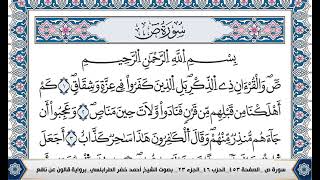 سُورَةُ صٓ
بِسْمِ اِللَّهِ اِلرَّحْمَٰنِ اِلرَّحِيمِ
صٓ وَالْقُرْءَانِ ذِے اِلذِّكْرِ بَلِ اِلذِينَ كَفَرُواْ فِے عِزَّةٖ وَشِقَاقٖ ١ كَمَ
اَهْلَكْنَا مِن قَبْلِهِم مِّن قَرْنٖ فَنَادَواْ وَّلَاتَ حِينَ مَنَاصٖ ٢ وَعَجِبُواْ أَن
جَآءَهُم مُّنذِرٞ مِّنْهُمْ وَقَالَ اَلْكَٰفِرُونَ هَٰذَا سَٰحِرٞ كَذَّابٌ ٣ اَجَعَلَ
سورة ص. الصفحة ٤٥٣. الحزب ٤٦. الجزء ٢٣. بصوت الشيخ أحمد خضر الطرابلسي. برواية قالون عن نافع